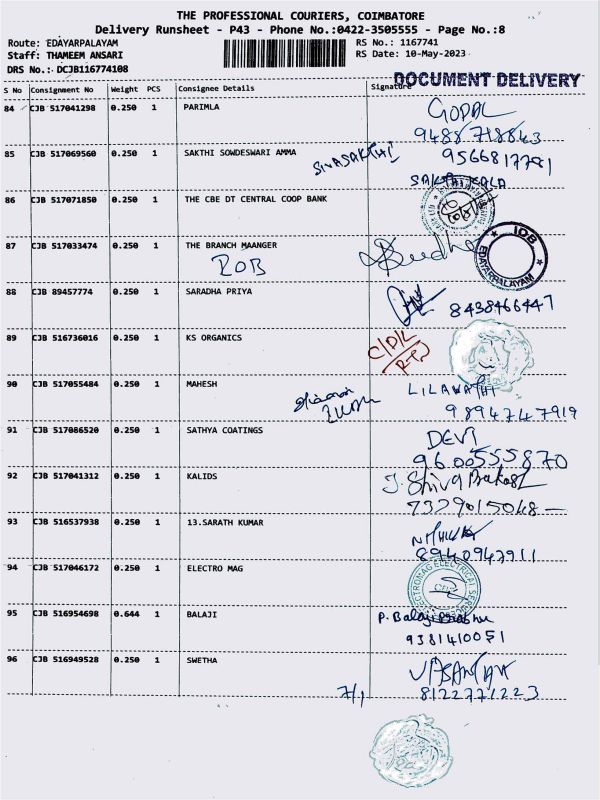 THE PROFESSIONAL COURIERS, COIMBATORE
Delivery Runsheet - P43 - Phone No.:0422-3505555 - Page No.:8
Route: EDAYARPALAYAM RS No.: 1167741
Staff: THAMEEM ANSARI RS Date: 10-May-2023
DRS No.: DCJB116774108
DOCUMENT DELIVERY
S No Consignment No Weight PCS Consignee Details Signature
84 CJB 517041298 0.250 1 PARIMLA GOPAL
9488718843
85 CJB 517069560 0.250 1 SAKTHI SOWDESWARI AMMA SIVASAKTHI 9566817791
SAKTHI KALA
86 CJB 517071850 0.250 1 THE CBE DT CENTRAL COOP BANK
87 CJB 517033474 0.250 1 THE BRANCH MAANGER
IOB
EDAYARPALAYAM
88 CJB 89457774 0.250 1 SARADHA PRIYA 8438466447
89 CJB 516736016 0.250 1 KS ORGANICS C/D/L
RTO
90 CJB 517055484 0.250 1 MAHESH LILAWATHI
9894747919
91 CJB 517086520 0.250 1 SATHYA COATINGS DEVI
9600555870
92 CJB 517041312 0.250 1 KALIDS J. Shiva Prakash
7329015048
93 CJB 516537938 0.250 1 13.SARATH KUMAR
8940947911
94 CJB 517046172 0.250 1 ELECTRO MAG
ELECTROMAG ELECTRICAL
95 CJB 516954698 0.644 1 BALAJI P. Balaji Prabhu
9381410051
96 CJB 516949528 0.250 1 SWETHA
7/1 8122771223